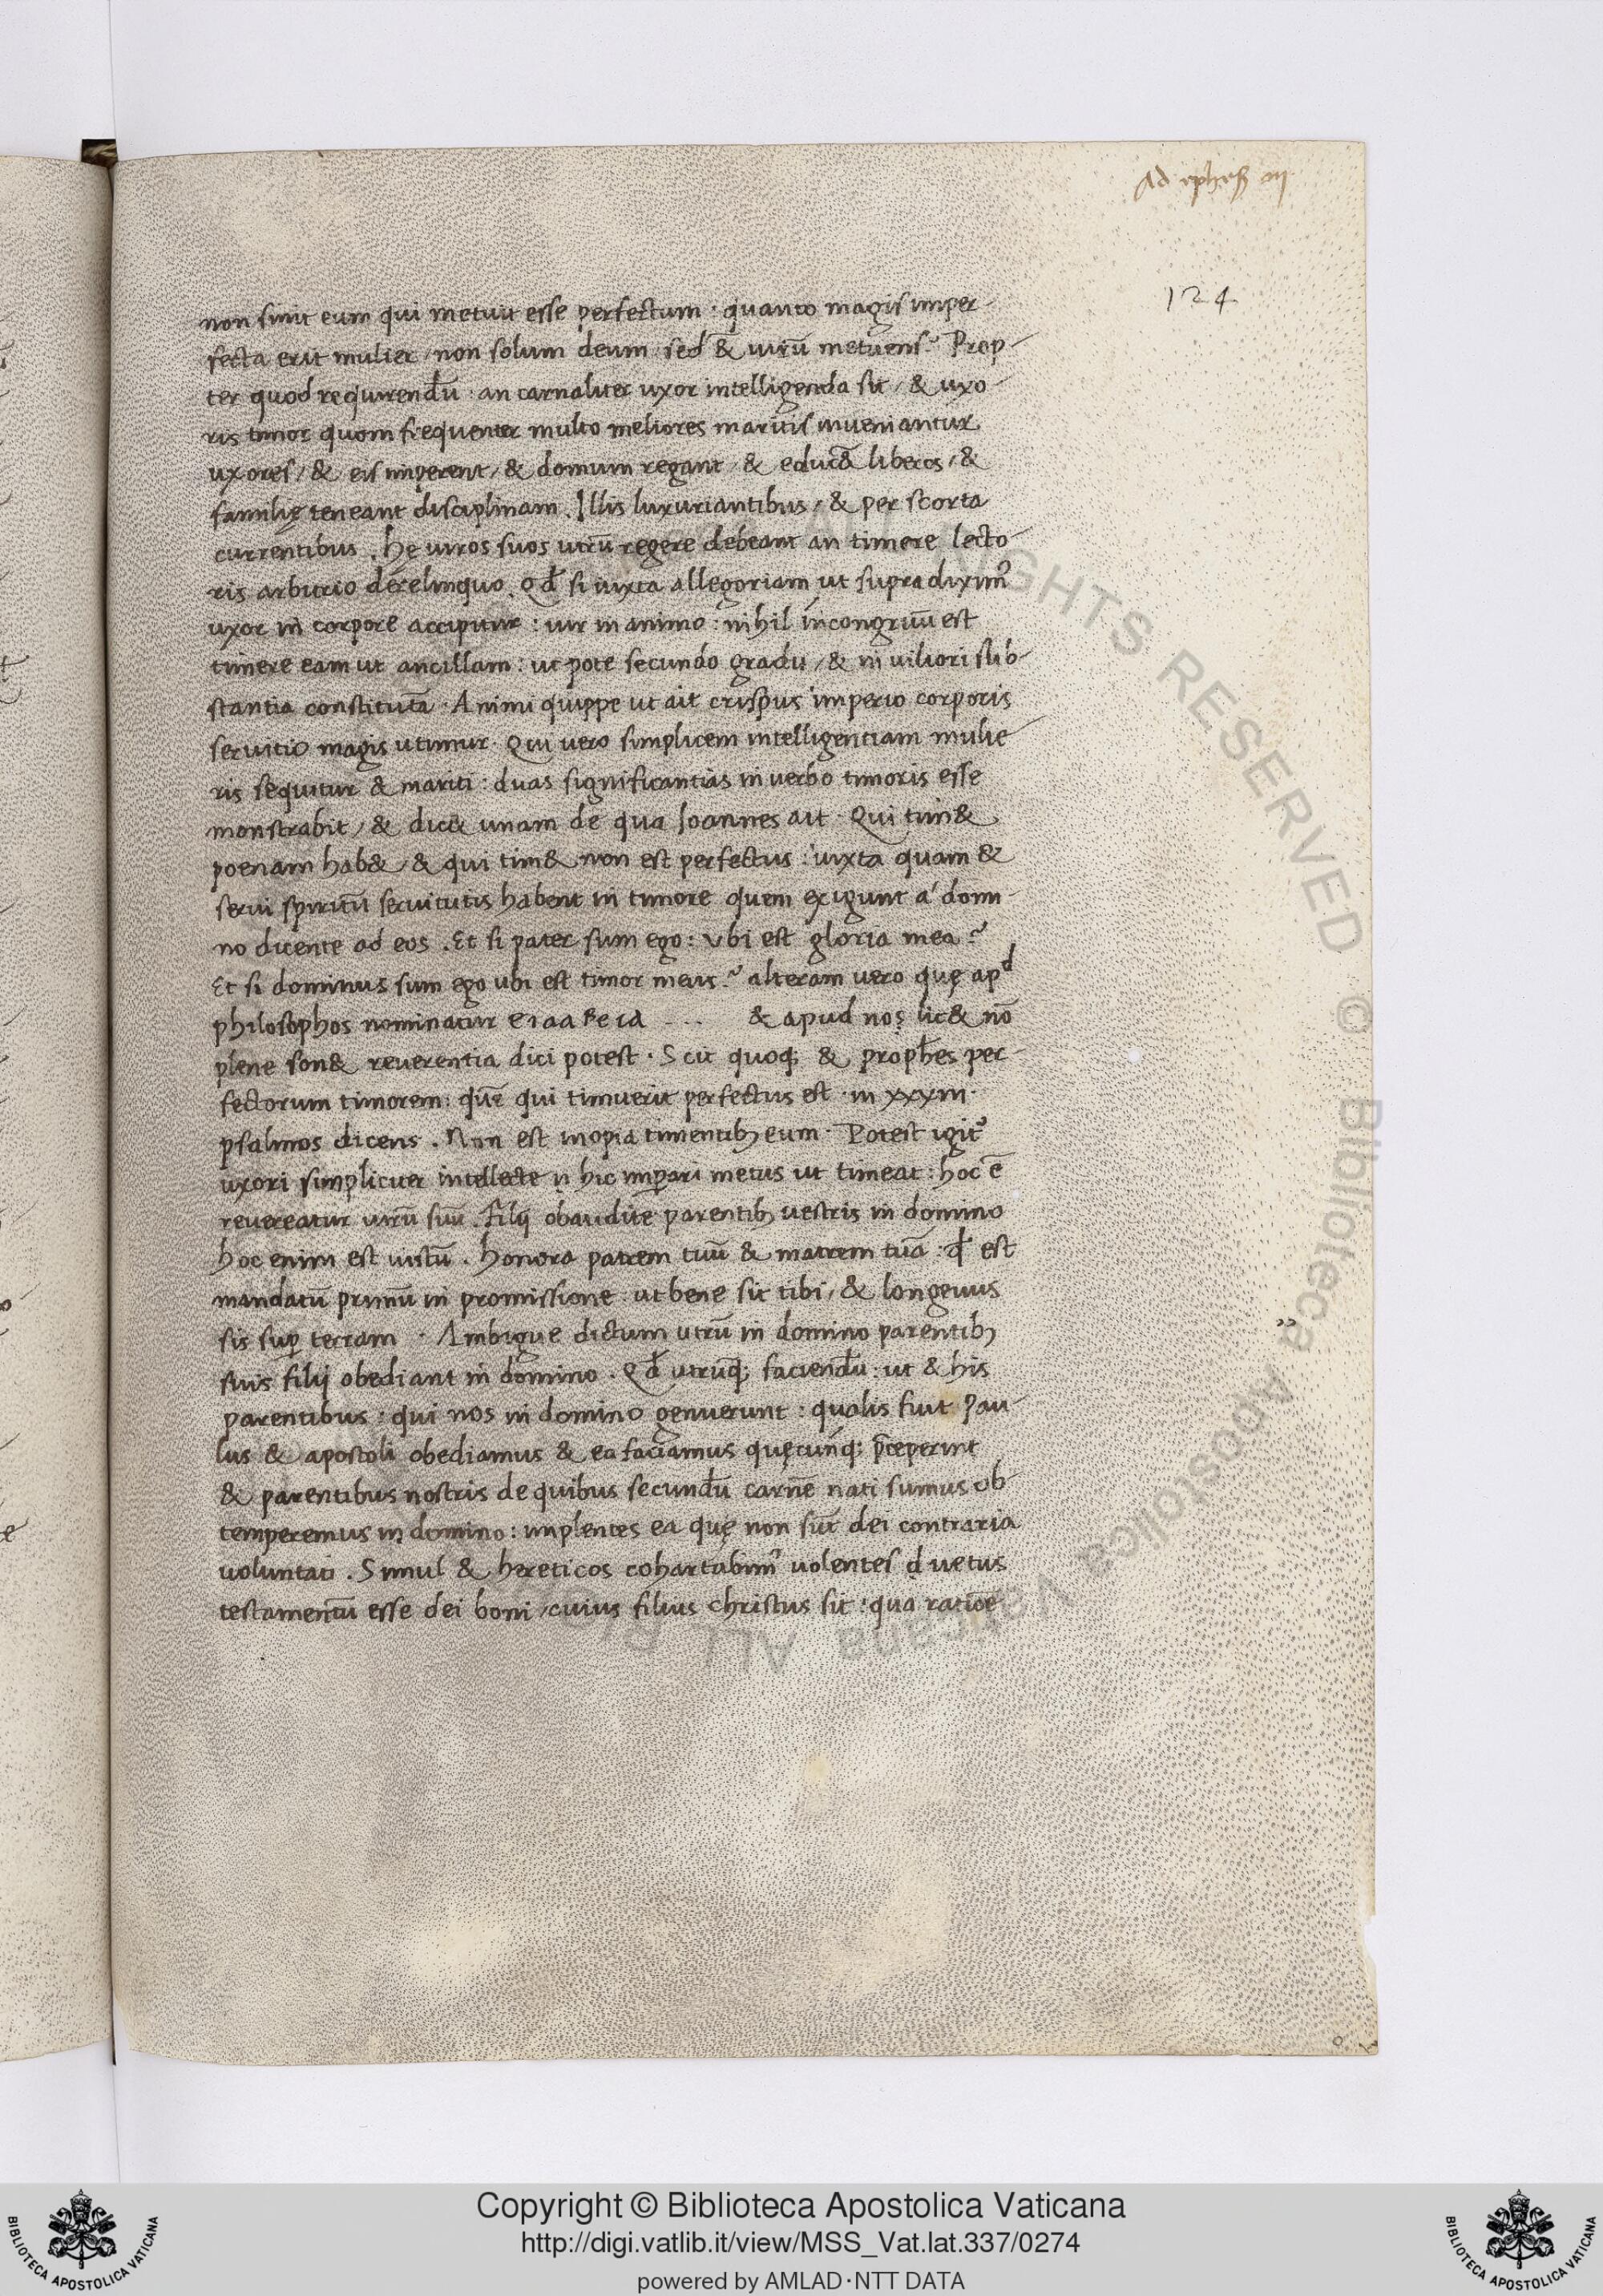 Ad ephes iii
124
non sinit eum qui metuit esse perfectum · quanto magis imper-
fecta erit mulier / non solum deum sed & virū metuens? Prop-
ter quod requirendū : an carnaliter uxor intelligenda sit / & uxo-
ris timor quom frequenter multo meliores maritis inveniantur
uxores / & eis imperent / & domum regant / & educāt liberos / &
familię teneant disciplinam . Illis luxuriantibus / & per scorta
currentibus . hę viros suos utrū regere debeant an timere lecto-
ris arbitrio derelinquo . Qđ si iuxta allegoriam ut supra diximꝰ
uxor in corpore accipitur : vir in animo : nihil incongruū est
timere eam ut ancillam : ut pote secundo gradu / & in viliori sub-
stantia constitutā . Animi quippe ut ait crispus imperio corporis
servitio magis utimur . Qui vero simplicem intelligentiam mulie-
ris sequitur & mariti : duas significantias in verbo timoris esse
monstrabit / & dic& unam de qua Ioannes ait . Qui tim&
poenam hab& / & qui tim& non est perfectus : iuxta quam &
servi spiritū servitutis habent in timore quem exigunt a domi-
no dicente ad eos . Et si pater sum ego : ubi est gloria mea ?
Et si dominus sum ego ubi est timor meus ? alteram vero quę apᵈ
philosophos nominatur eiaaβeia ... & apud nos lic& nō
plene son& reverentia dici potest . Scit quoq; & prophes per-
fectorum timorem : quē qui timuerit perfectus est . in xxxiii .
psalmos dicens . Non est inopia timentibꝫ eum . Potest igitᵘʳ
uxori simpliciter intellecte n hic imperari metus ut timeat : hoc ē
revereatur virū suū . Filij obaudite parentibꝫ vestris in domino
hoc enim est iustū . honora patrem tuū & matrem tuā : qđ est
mandatū primū in promissione ut bene sit tibi / & longevus
sis sup̄ terram . Ambigue dictum utrū in domino parentibꝫ
suis filij obediant in domino . Qđ utrūq; faciendū : ut & his
parentibus : qui nos in domino genuerunt : qualis fuit Pau-
lus & apostoli obediamus & ea faciamus quęcunq; p̄ceperint
& parentibus nostris de quibus secundū carnē nati sumus ob-
temperemus in domino : implentes ea quę non sūt dei contraria
voluntati . Simul & hereticos cohartabimꝰ volentes d vetus
testamentū esse dei boni / cuius filius christus sit : qua ratiōe
Copyright © Biblioteca Apostolica Vaticana
http://digi.vatlib.it/view/MSS_Vat.lat.337/0274
powered by AMLAD·NTT DATA
BIBLIOTECA APOSTOLICA VATICANA
BIBLIOTECA APOSTOLICA VATICANA
ALL RIGHTS RESERVED © Biblioteca Apostolica Vaticana ALL RIG